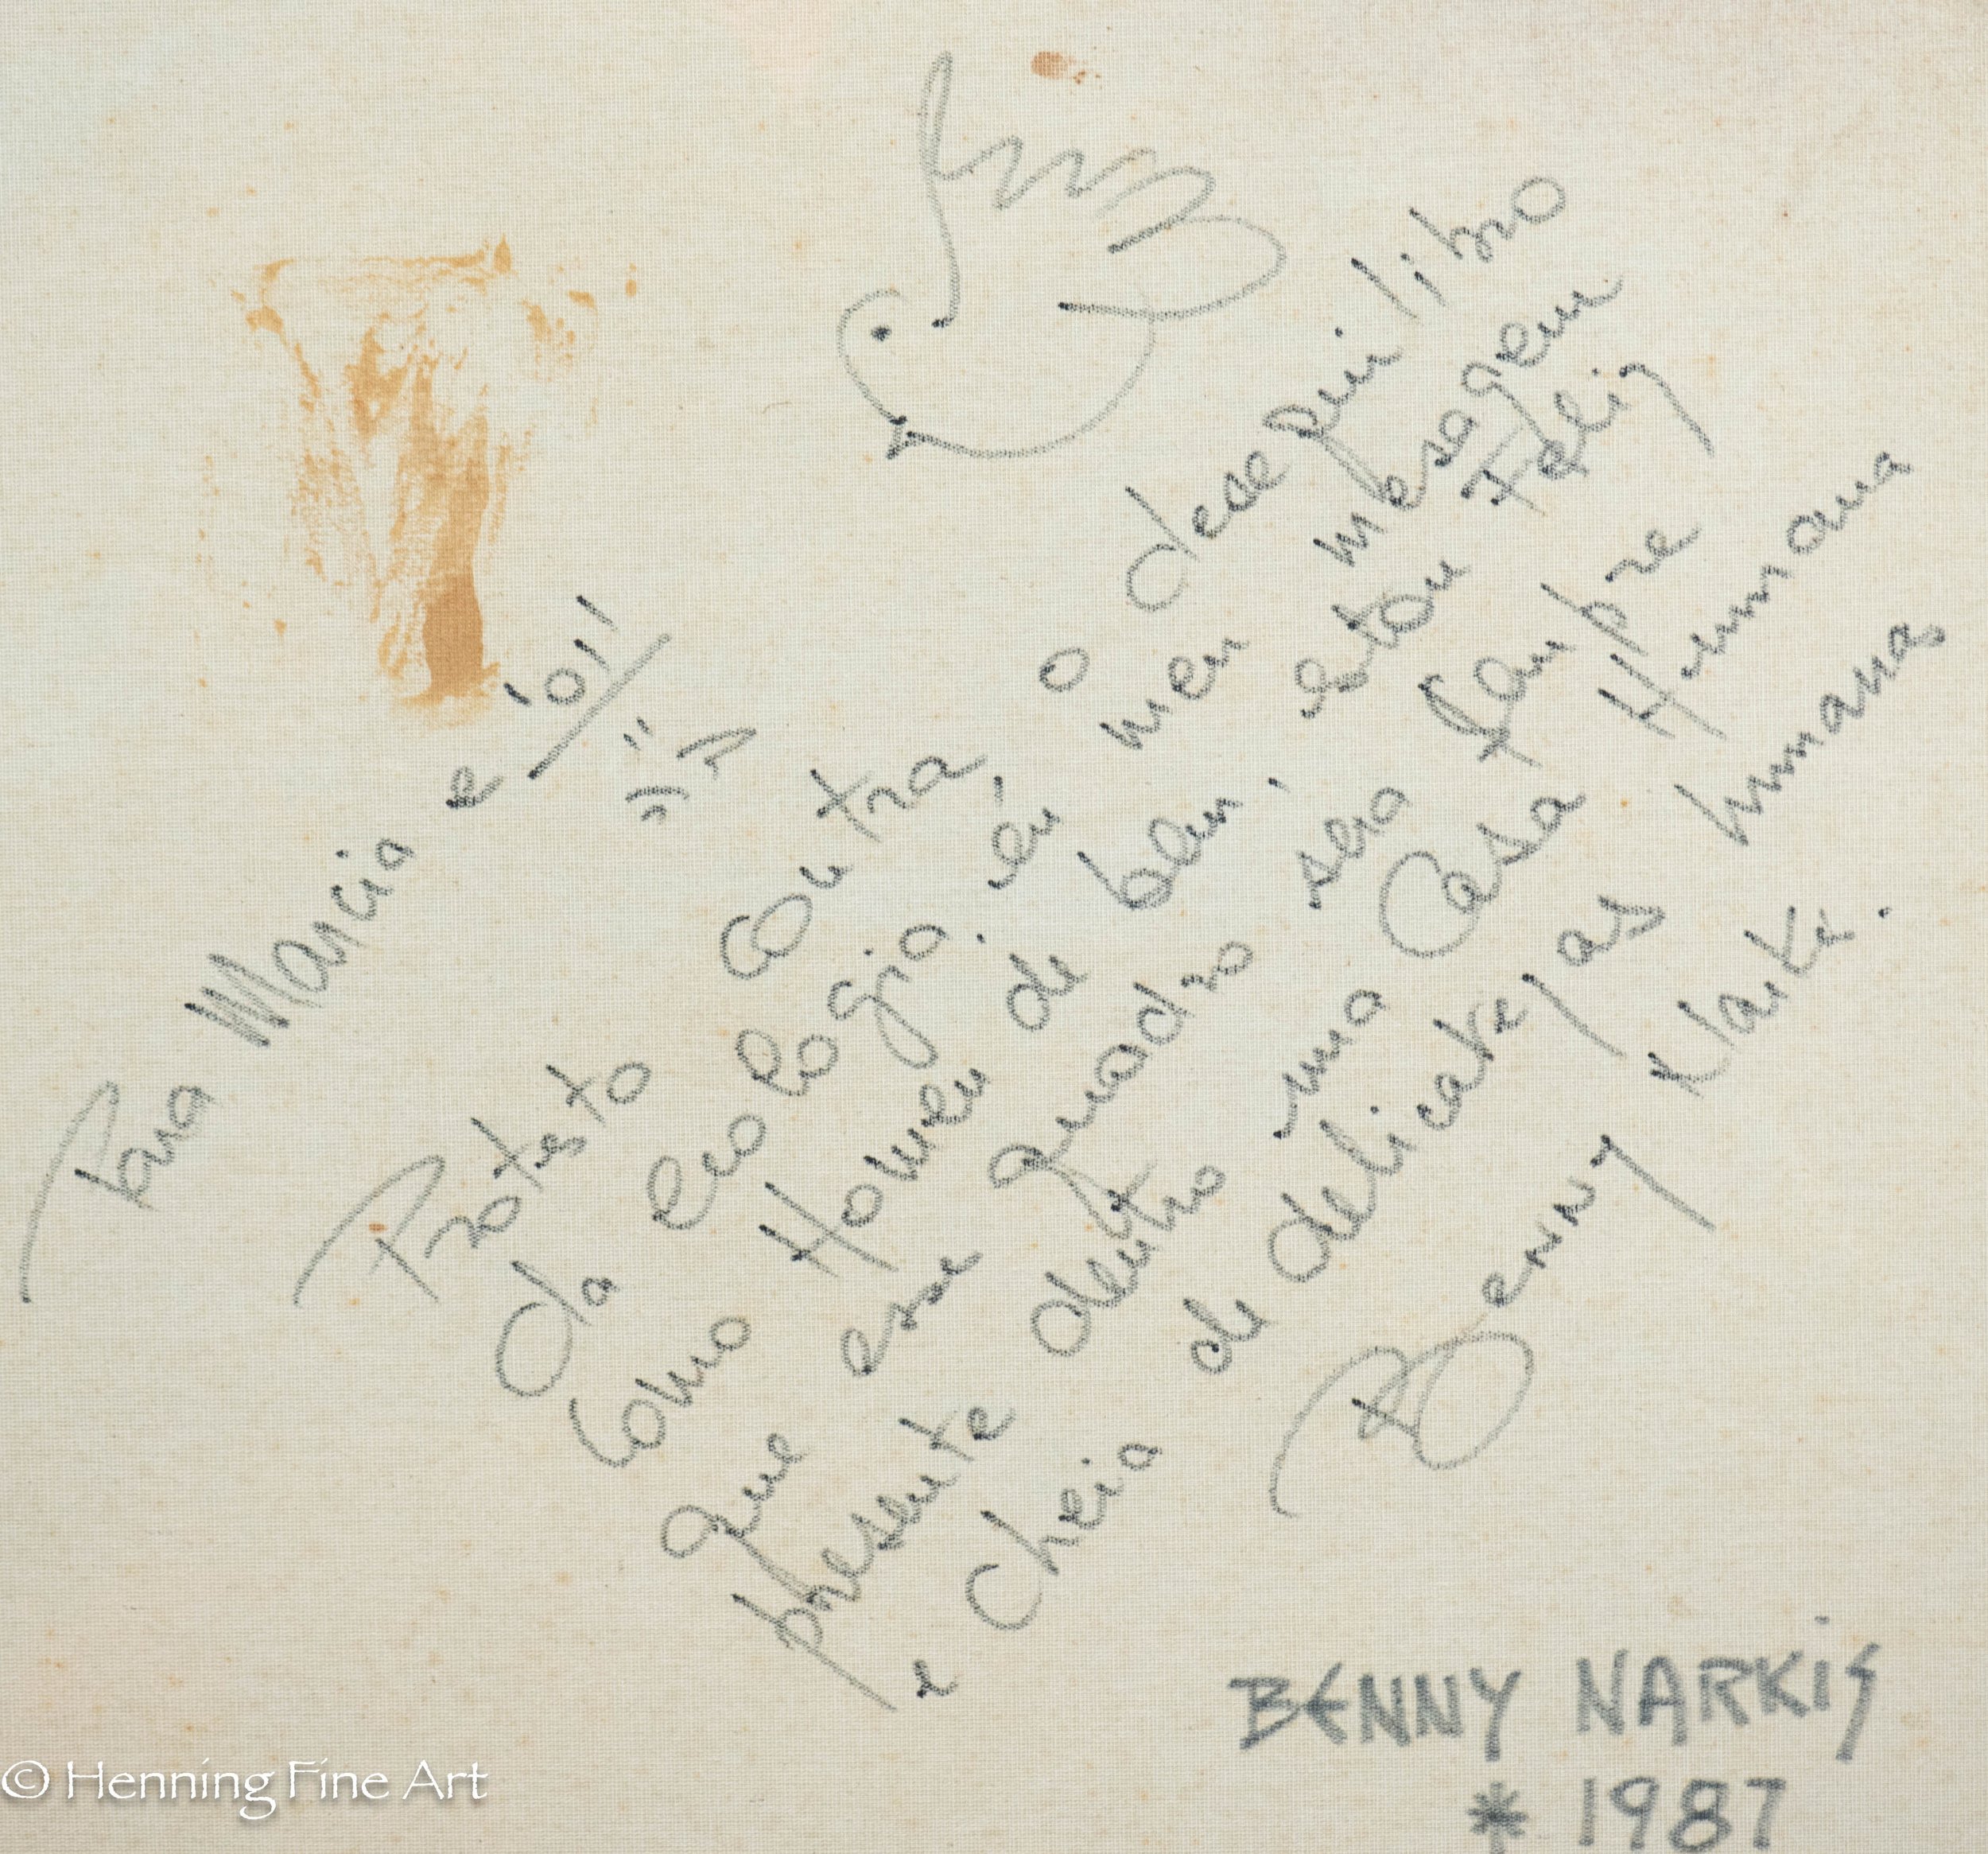 Para Marcia e
Protesto contra o desequilibro
da ecologia, én meu mesagem
como Homen de bem, estou Feliz
que esse quadro sera sempre
presente dentro uma Casa Humana
e cheia de delicatezas humanas
Benny Narkis.
BENNY NARKIS
* 1987
© Henning Fine Art